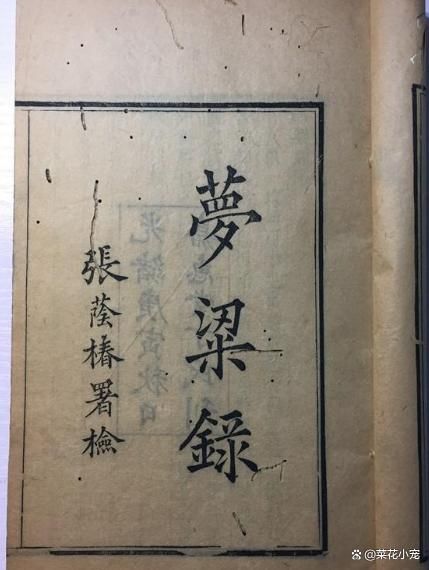 夢粱錄
張蔭椿署檢
菜花小宠